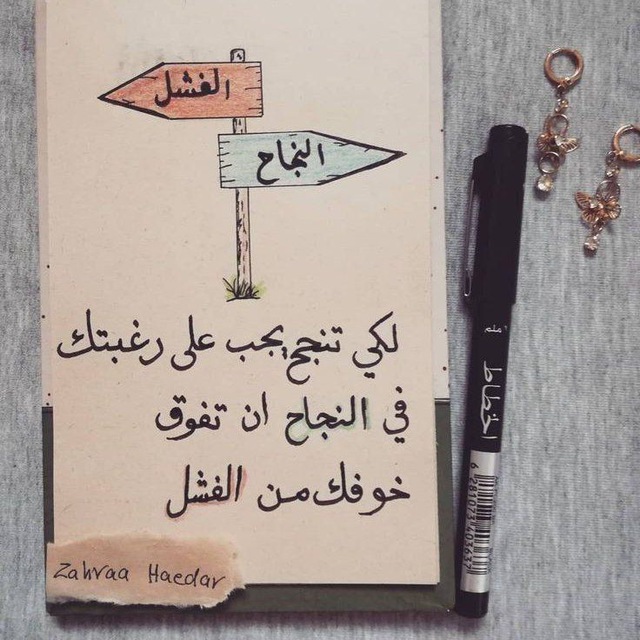 الفشل
النجاح
لكي تنجح يجب على رغبتك
في النجاح ان تفوق
خوفك من الفشل
Zahraa Haedar
الخطاط
6281073403637